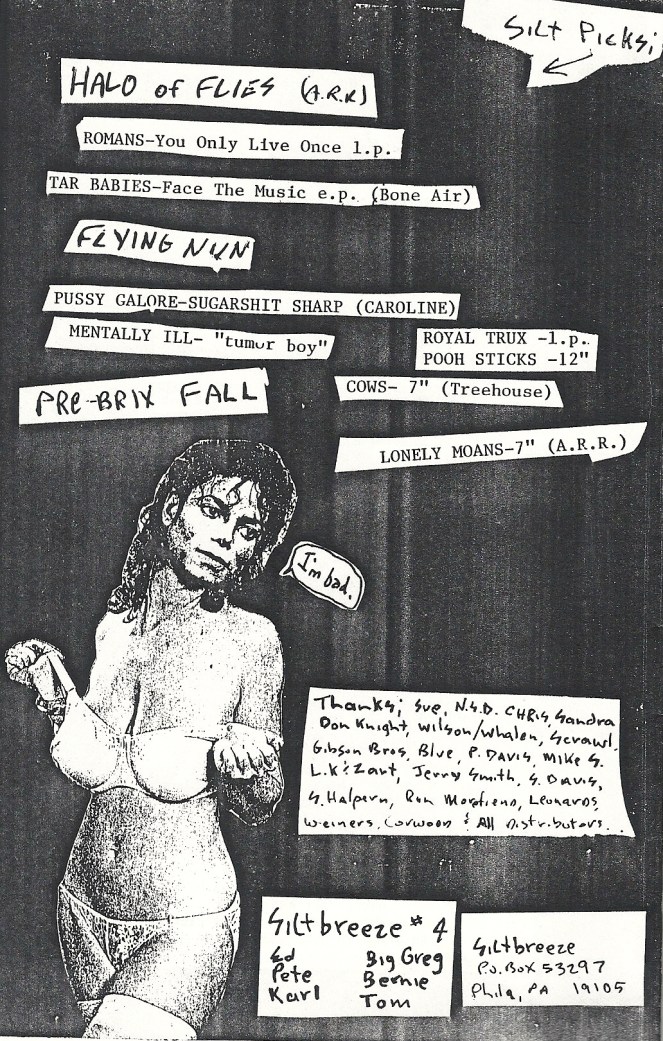 SILT PICKS;
HALO of FLIES (A.R.R)
ROMANS-You Only Live Once l.p.
TAR BABIES-Face The Music e.p. (Bone Air)
FLYING NUN
PUSSY GALORE-SUGARSHIT SHARP (CAROLINE)
MENTALLY ILL- "tumor boy"
ROYAL TRUX -l.p.
POOH STICKS -12"
PRE-BRIX FALL
COWS- 7" (Treehouse)
LONELY MOANS-7" (A.R.R.)
I'm bad.
Thanks; Sue, N.S.D. CHRIS, Sandra
Don Knight, Wilson/Whalen, Scrawl,
Gibson Bros, Blue, P. DAVIS, Mike S.
L.K & Zart, Jerry Smith, S. DAVIS,
S. Halpern, Ron Leonards,
Weiners, Corwood & All Distributors..
Siltbreeze #4
Ed Big Greg
Pete Bernie
Karl Tom
Siltbreeze
P.O. Box 53297
Phila, PA 19105